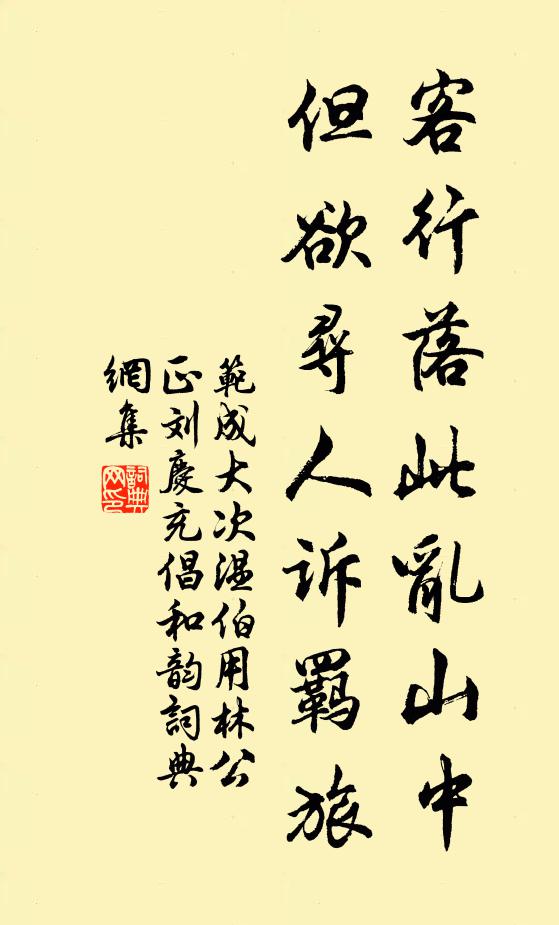 客行落此亂山中
但欲尋人诉羈旅
範成大次温伯用林公
正刘慶充倡和韵詞典
網集
詞典
网印